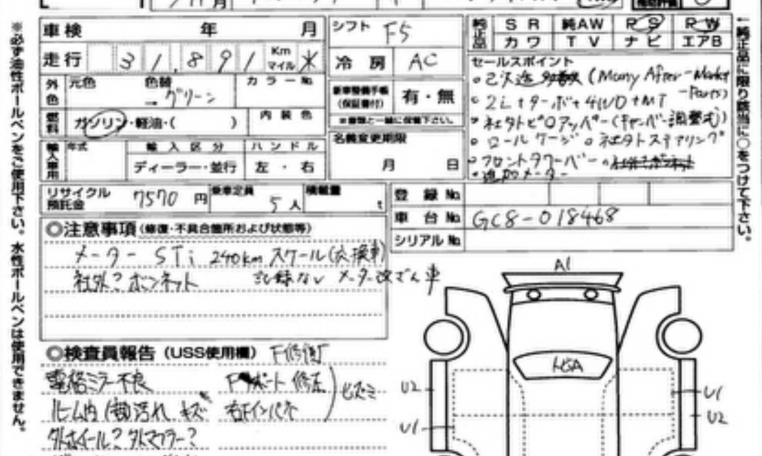 車検 年 月 シフト F5 純正品 SR 純AW PS PW
カワ TV ナビ エアB
走行 31,891 Km マイル 冷房 AC
セールスポイント
(Many After-Market Parts)
2ℓ+ターボ+4WD+MT
外色 元色 色替 カラーNo.
→グリーン
新車整備手帳(保証書付) 有・無
※書類と一緒に保管下さい。
社外ピロアッパー(キャンバー調整式)
ロールケージ 社外ステアリング
フロントタワーバー
追加メーター
燃料 ガソリン・軽油・( ) 内装色
名義変更期限
月 日
輸入車用 年式 輸入区分 ハンドル
ディーラー・並行 左・右
リサイクル預託金 7570円 乗車定員 5人 積載量 t
登録No.
車台No. GC8-018468
シリアルNo.
◎注意事項(修復・不具合箇所および状態等)
メーター STi 240kmスケール(交換車)
社外?ボンネット 記録なし メーター改ざん車
◎検査員報告(USS使用欄) F修復
電格ミラー不良 Fサポート修正
ルーム内 汚れ キズ 右Fインパネ
外ホイール?外マフラー?
A1
U2
U1
U1
U2
※必ず油性ボールペンをご使用下さい。水性ボールペンは使用できません。
←純正品に限り該当に○をつけて下さい。